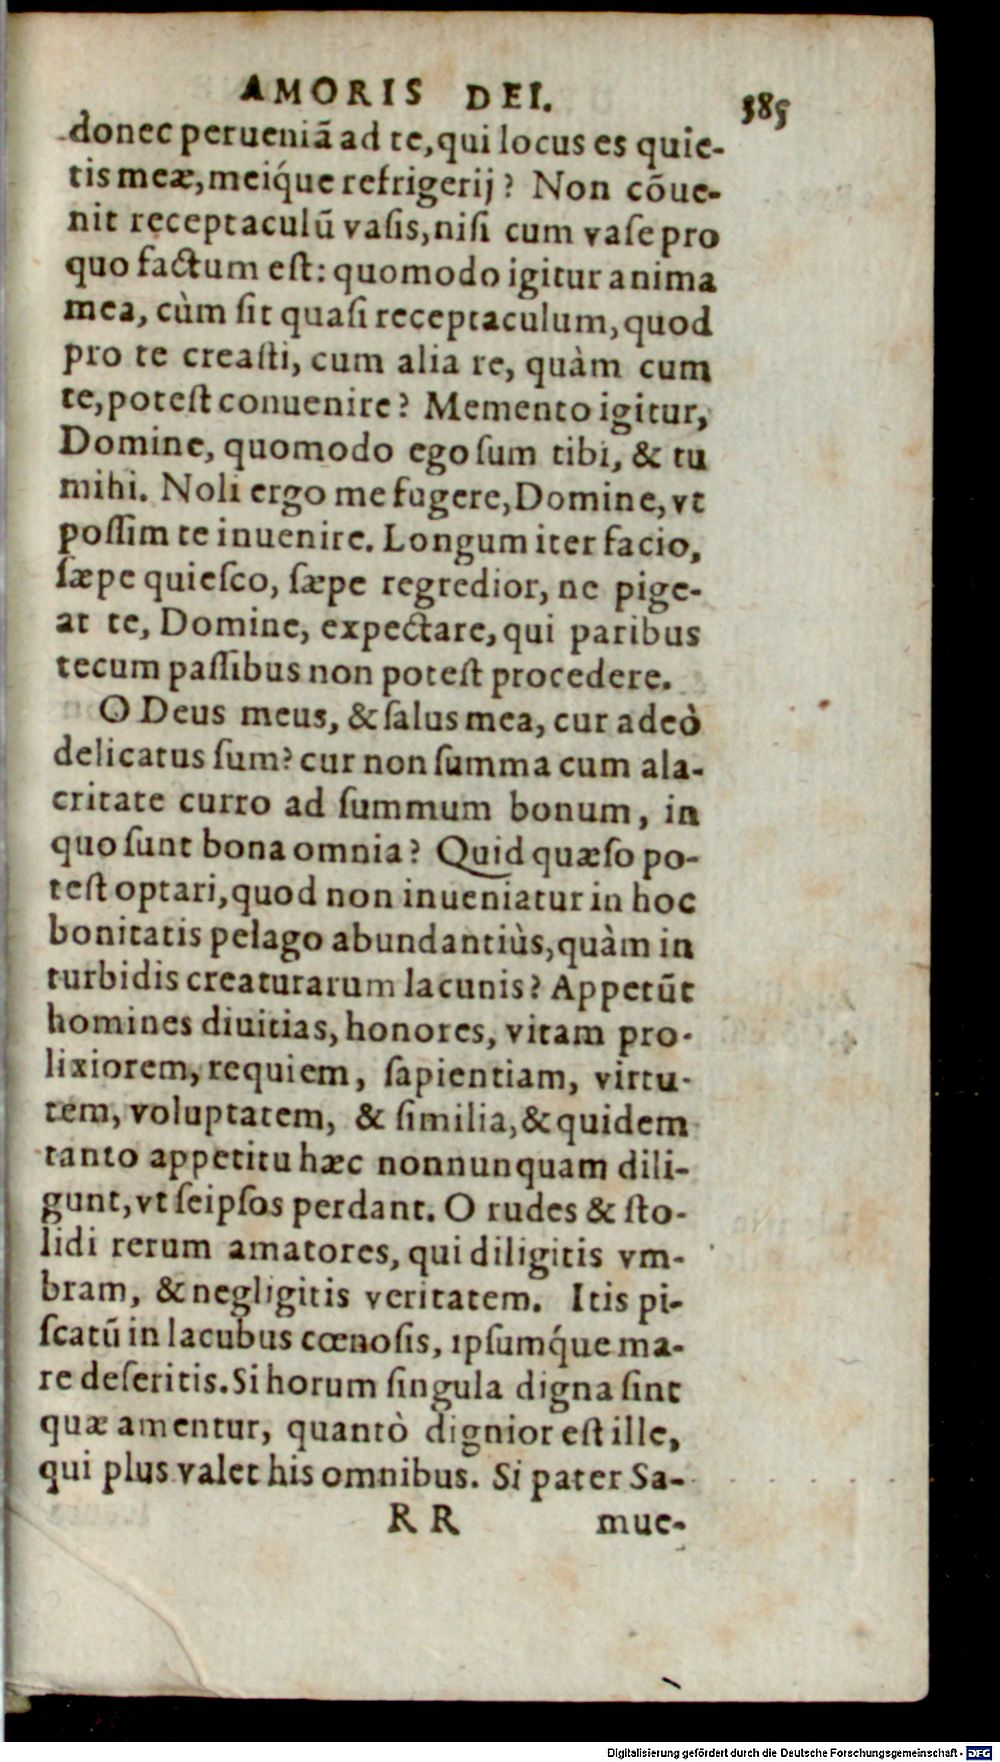 AMORIS DEI. 385
donec perueniã ad te, qui locus es quie-
tis meæ, meiq́ue refrigerij? Non cõue-
nit receptaculũ vasis, nisi cum vase pro
quo factum est: quomodo igitur anima
mea, cùm sit quasi receptaculum, quod
pro te creasti, cum alia re, quàm cum
te, potest conuenire? Memento igitur,
Domine, quomodo ego sum tibi, & tu
mihi. Noli ergo me fugere, Domine, vt
possim te inuenire. Longum iter facio,
sæpe quiesco, sæpe regredior, ne pige-
at te, Domine, expectare, qui paribus
tecum passibus non potest procedere.
O Deus meus, & salus mea, cur adeò
delicatus sum? cur non summa cum ala-
critate curro ad summum bonum, in
quo sunt bona omnia? Quid quæso po-
test optari, quod non inueniatur in hoc
bonitatis pelago abundantiùs, quàm in
turbidis creaturarum lacunis? Appetũt
homines diuitias, honores, vitam pro-
lixiorem, requiem, sapientiam, virtu-
tem, voluptatem, & similia, & quidem
tanto appetitu hæc nonnunquam dili-
gunt, vt seipsos perdant. O rudes & sto-
lidi rerum amatores, qui diligitis vm-
bram, & negligitis veritatem. Itis pi-
scatũ in lacubus cœnosis, ipsumq́ue ma-
re deseritis. Si horum singula digna sint
quæ amentur, quantò dignior est ille,
qui plus valet his omnibus. Si pater Sa-
RR mue-
Digitalisierung gefördert durch die Deutsche Forschungsgemeinschaft - DFG